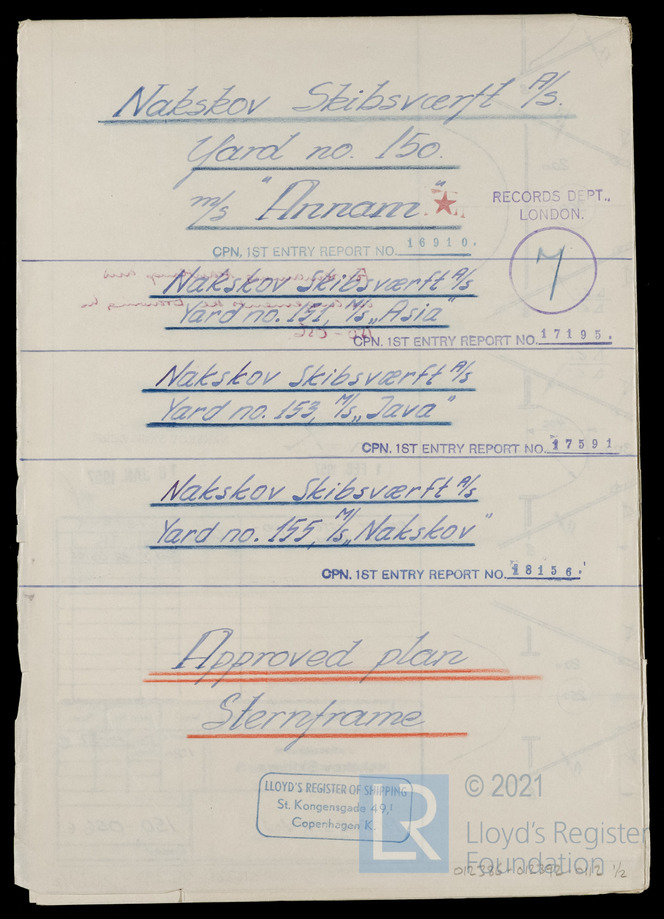 Nakskov Skibsværft A/S.
Yard no. 150.
m/s "Annam".
RECORDS DEPT.,
LONDON.
CPN. 1ST ENTRY REPORT NO. 16910.
7
Nakskov Skibsværft A/S
Yard no. 151, M/S „Asia"
CPN. 1ST ENTRY REPORT NO. 17195.
Nakskov Skibsværft A/S
Yard no. 153, M/S „Java"
CPN. 1ST ENTRY REPORT NO. 17591
Nakskov Skibsværft A/S
Yard no. 155, M/S „Nakskov"
CPN. 1ST ENTRY REPORT NO. 18156.
Approved plan
Sternframe
LLOYD'S REGISTER OF SHIPPING
St. Kongensgade 49,
Copenhagen K.
LR
© 2021
Lloyd's Register
Foundation
1/2